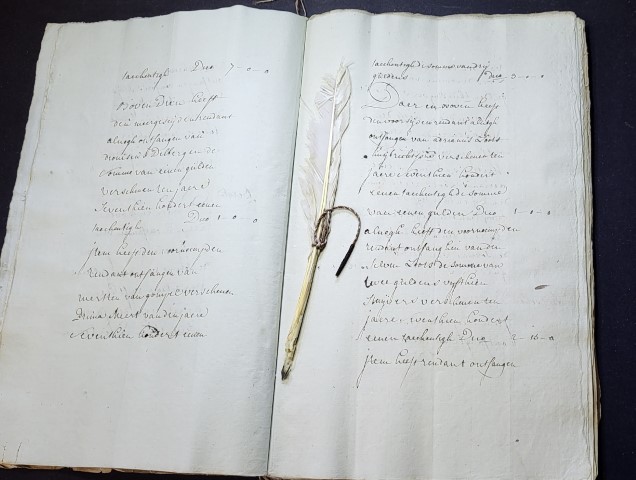 tachentigh Dus 7-0-0
Boven dien heeft
den meergeseijden rendant
alnogh ontfangen van
dionisius Dilbergen de
somme van eenen gulden
verschenen ten jaere
seventhien hondert eenen
tachentigh Dus 1-0-0
Item heeft den voornoemden
rendant ontfangen van
verschenen
Prima Meert van den jaere
seventhien hondert eenen
tachentigh de somme van drij
guldens Dus 3-0-0
Daer en boven heeft
den voorseijden rendant alnogh
ontfangen van adrianus Loots
verschenen ten
jaere seventhien hondert
eenen tachentigh de somme
van eenen gulden Dus 1-0-0
alnogh heeft den voornoemden
rendant ontfanghen van den
selven Loots de somme van
twee guldens vijfthien
stuijvers verschenen ten
jaere seventhien hondert
eenen tachentigh Dus
Item heeft rendant ontfangen